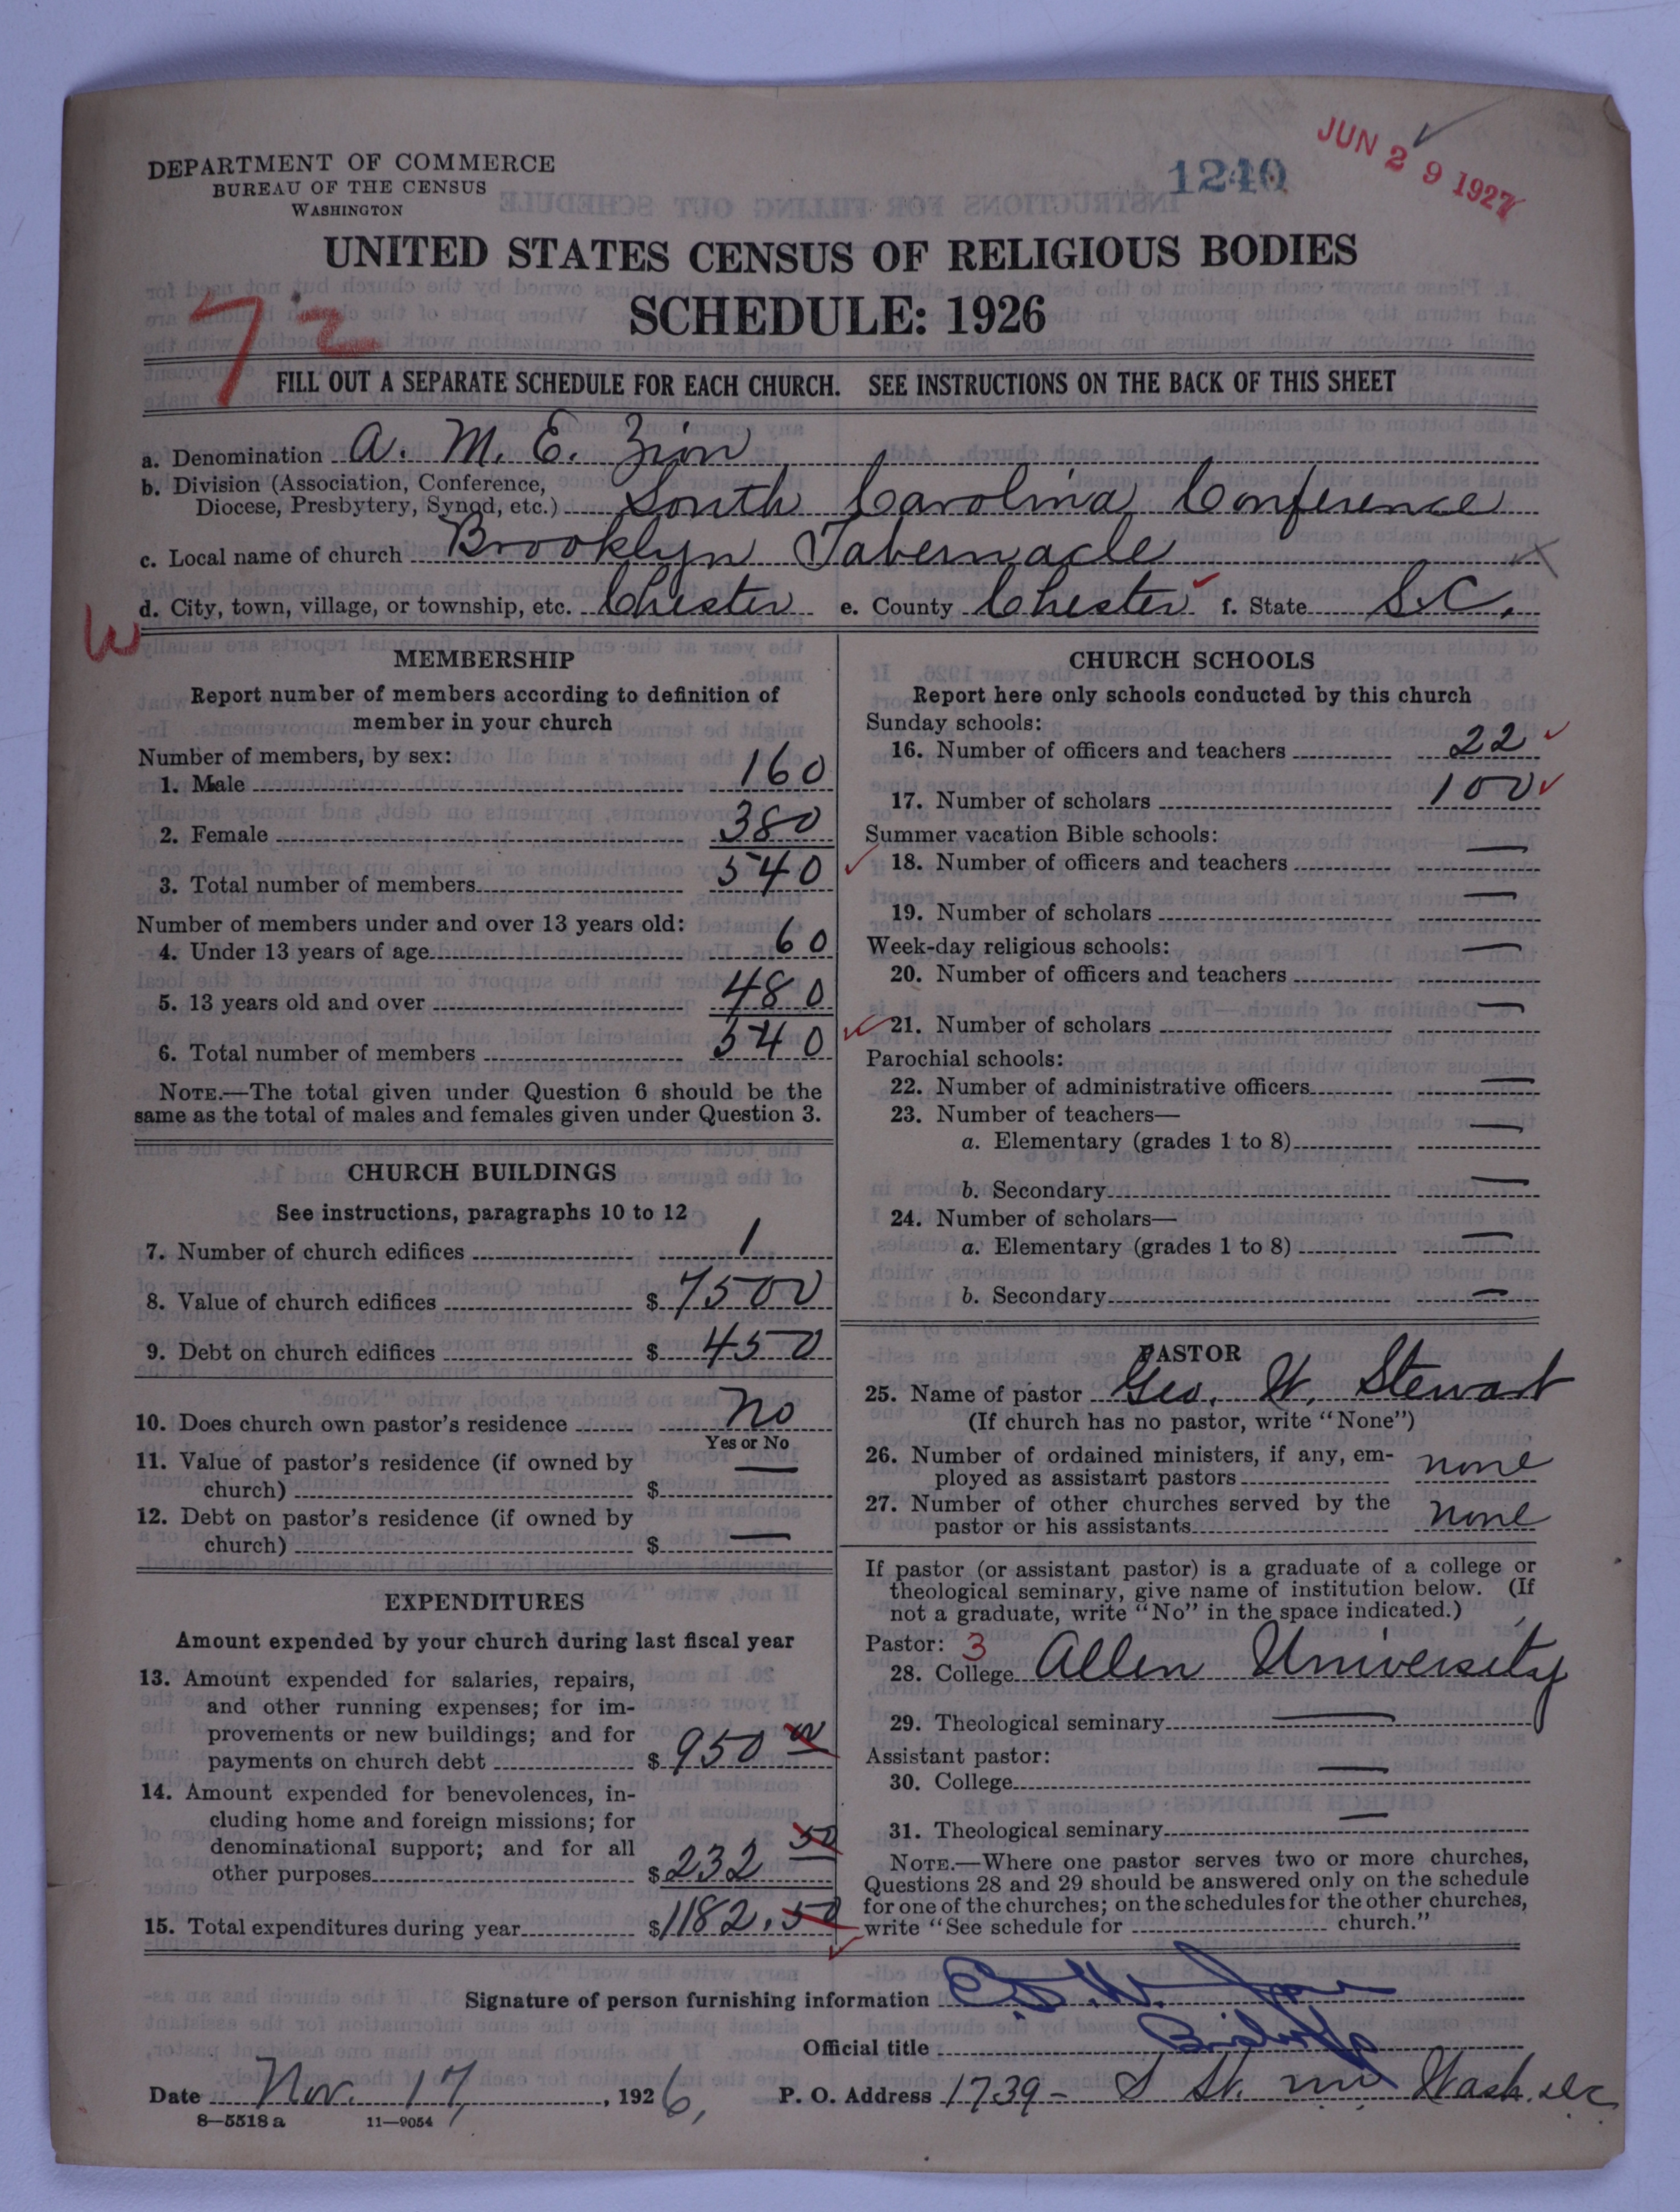 DEPARTMENT OF COMMERCE
BUREAU OF THE CENSUS
WASHINGTON
1240
JUN 29 1927
UNITED STATES CENSUS OF RELIGIOUS BODIES
SCHEDULE: 1926
72
FILL OUT A SEPARATE SCHEDULE FOR EACH CHURCH. SEE INSTRUCTIONS ON THE BACK OF THIS SHEET
a. Denomination A. M. E. Zion
b. Division (Association, Conference, Diocese, Presbytery, Synod, etc.) South Carolina Conference
c. Local name of church Brooklyn Tabernacle
W
d. City, town, village, or township, etc. Chester e. County Chester f. State S.C.
MEMBERSHIP
Report number of members according to definition of
member in your church
Number of members, by sex:
1. Male 160
2. Female 380
3. Total number of members 540
Number of members under and over 13 years old:
4. Under 13 years of age 60
5. 13 years old and over 480
6. Total number of members 540
NOTE.—The total given under Question 6 should be the
same as the total of males and females given under Question 3.
CHURCH BUILDINGS
See instructions, paragraphs 10 to 12
7. Number of church edifices 1
8. Value of church edifices $ 7500
9. Debt on church edifices $ 450
10. Does church own pastor's residence No
Yes or No
11. Value of pastor's residence (if owned by
church) $ —
12. Debt on pastor's residence (if owned by
church) $ —
EXPENDITURES
Amount expended by your church during last fiscal year
13. Amount expended for salaries, repairs,
and other running expenses; for im-
provements or new buildings; and for
payments on church debt $ 950 00
14. Amount expended for benevolences, in-
cluding home and foreign missions; for
denominational support; and for all
other purposes $ 232 50
15. Total expenditures during year $ 1182.50
CHURCH SCHOOLS
Report here only schools conducted by this church
Sunday schools:
16. Number of officers and teachers 22
17. Number of scholars 100
Summer vacation Bible schools:
18. Number of officers and teachers —
19. Number of scholars —
Week-day religious schools:
20. Number of officers and teachers —
21. Number of scholars —
Parochial schools:
22. Number of administrative officers —
23. Number of teachers—
a. Elementary (grades 1 to 8) —
b. Secondary —
24. Number of scholars—
a. Elementary (grades 1 to 8) —
b. Secondary —
PASTOR
25. Name of pastor Geo. W. Stewart
(If church has no pastor, write "None")
26. Number of ordained ministers, if any, em-
ployed as assistant pastors none
27. Number of other churches served by the
pastor or his assistants none
If pastor (or assistant pastor) is a graduate of a college or
theological seminary, give name of institution below. (If
not a graduate, write "No" in the space indicated.)
Pastor: 3
28. College Allen University
29. Theological seminary —
Assistant pastor:
30. College —
31. Theological seminary —
NOTE.—Where one pastor serves two or more churches,
Questions 28 and 29 should be answered only on the schedule
for one of the churches; on the schedules for the other churches,
write "See schedule for church."
Signature of person furnishing information
Official title Bishop
Date Nov. 17, 1926, P. O. Address 1739- S St. nw Wash. DC
8—5518 a 11—9054